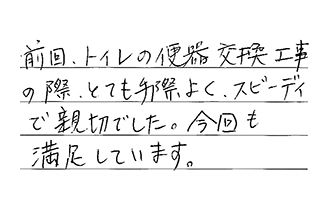 前回、トイレの便器交換工事
の際、とても手際よく、スピーディ
で親切でした。今回も
満足しています。